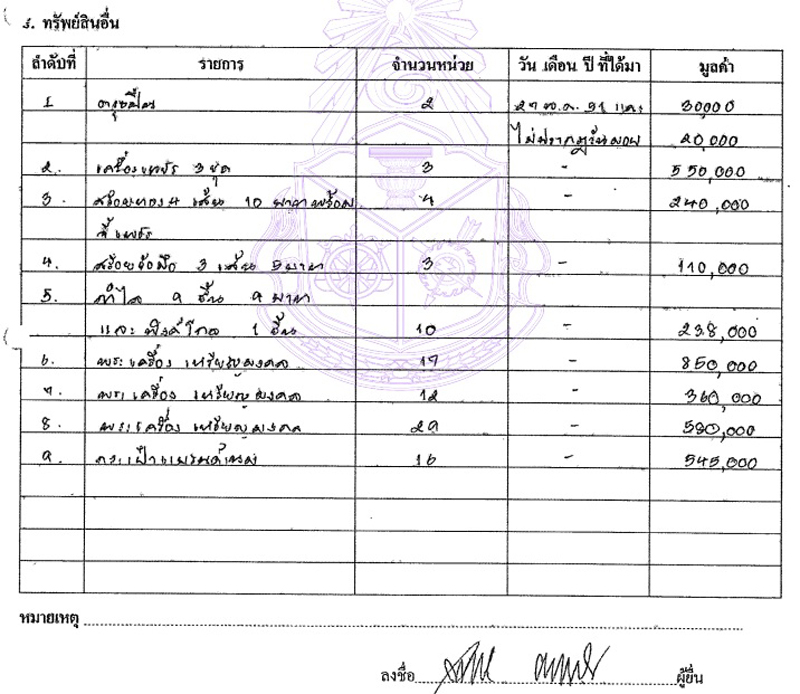 ทรัพย์สินอื่น
ลำดับที่ รายการ จำนวนหน่วย วัน เดือน ปี ที่ได้มา มูลค่า
1 อาวุธปืน 2 และ 30,000
ไม่ปรากฏ 20,000
2. เครื่องเพชร 3 ชุด 3 - 550,000
3. สร้อยทอง 4 เส้น 10 บาท พร้อม 4 - 240,000
จี้เพชร
4. สร้อยข้อมือ 3 เส้น 5 บาท 3 - 110,000
5. กำไล 9 ชิ้น 9 บาท
และ 1 ชิ้น 10 - 238,000
6. พระเครื่อง เหรียญ 17 - 850,000
7. พระเครื่อง เหรียญ 12 - 360,000
8. พระเครื่อง เหรียญ 29 - 580,000
9. กระเป๋าแบรนด์เนม 16 - 545,000
หมายเหตุ
ลงชื่อ ผู้ยื่น